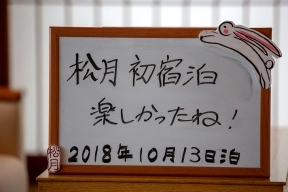 松月 初宿泊
楽しかったね!
2018年10月13日泊
松月